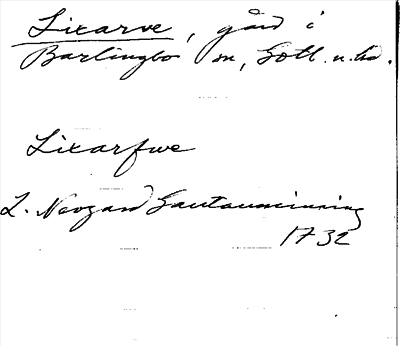 Lixarve, gård i
Barlingbo sn, Gotl. n. hd.
Lixarfwe
L. Neogard Gautauminning
1732